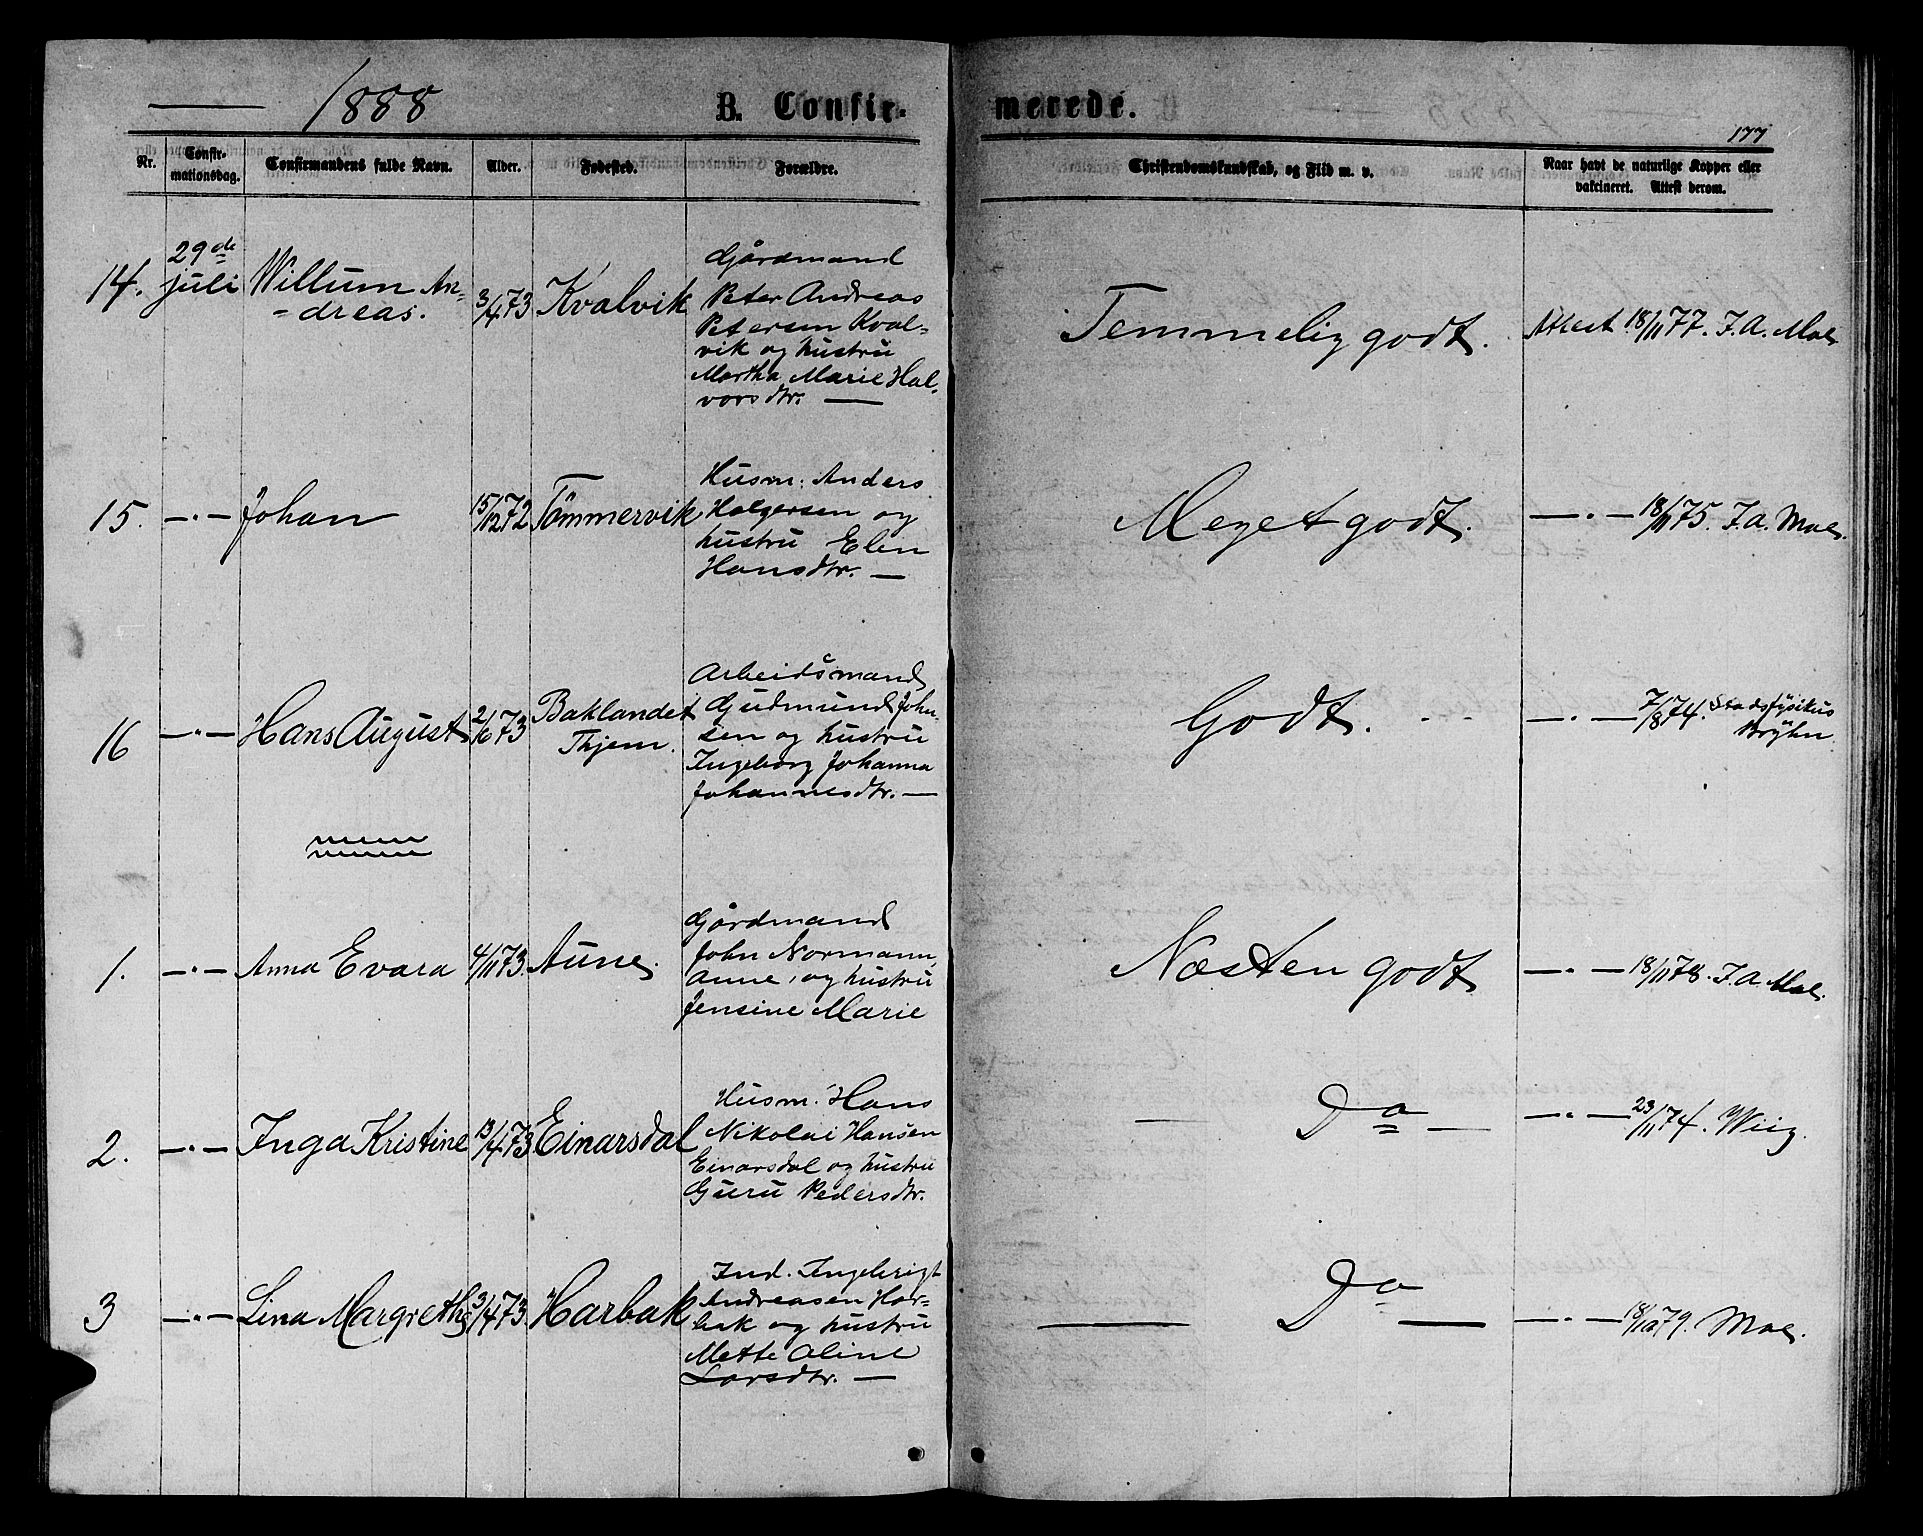 1888 B. Confir- merede.
177
Nr. Confir-mationsdag. Confirmandens fulde Navn. Alder. Fødested. Forældre. Christendomskundskab, og Flid m. v. Naar havt de naturlige Kopper eller vakcineret. Attest derom.
14. 29de juli Willum An-
=dreas. 3/4 73 Kvalvik
Gårdmand
Peter Andreas
Petersen Kval=
vik og hustru
Martha Marie Hal-
vorsdtr. —
Temmelig godt. Attest 18/11 77. J. A. Moe
15. —"— Johan 15/12 72 Tömmervik
Husm. Anders
Holgersen og
hustru Elen
Hansdtr. —
Meget godt. —"— 18/11 75. J. A. Moe.
16 —"— Hans August 2/6 73 Baklandet
Thjem.
Arbeidsmand
Gudmund John-
sen og hustru
Ingeborg Johanna
Johannesdtr. —
Godt. —"— 7/8 74. Stadsfysikus
Bryhn
1. —"— Anna Evara 4/11 73. Aune.
Gårdmand
John Normann
Aune, og hustru
Jensine Marie
Næsten godt —"— 18/11 78. J. A. Moe.
2. —"— Inga Kristine 13/4 73 Einarsdal
Husm. Hans
Nikolai Hansen
Einarsdal og hustru
Guru Pedersdtr.
— Do — —"— 23/11 74. Wiig.
3 —"— Lina Margrethe 3/4 73 Harbak
Ind. Ingebrigt
Andreasen Har=
bak og hustru
Mette Oline
Larsdtr. —
— Do — —"— 18/10 79. Moe.